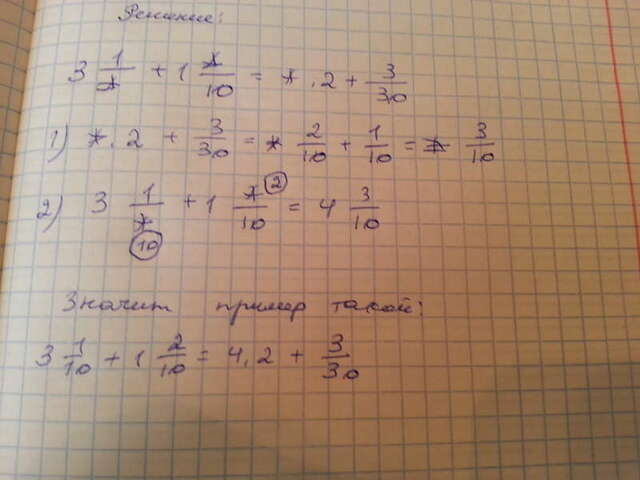 Решение:
3 1/* + 1 */10 = *,2 + 3/30
1) *,2 + 3/30 = * 2/10 + 1/10 = * 3/10
2) 3 1/* (10) + 1 */10 (2) = 4 3/10
Значит пример такой:
3 1/10 + 1 2/10 = 4,2 + 3/30